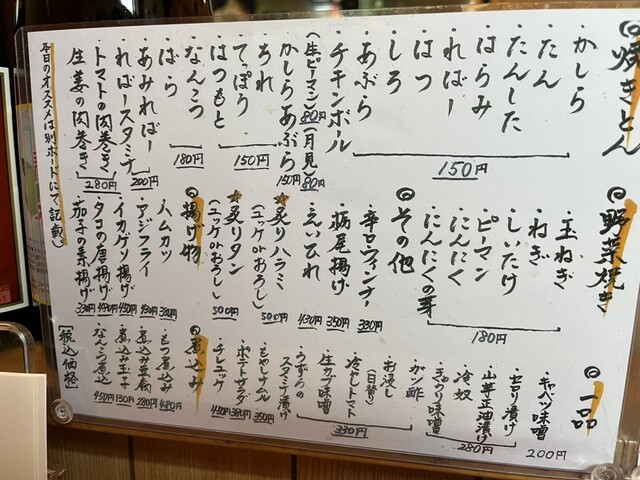 ◎焼きとん
・かしら
・たん
・たんした
・はらみ
・ればー
・はつ
・しろ
・あぶら
・チキンボール
150円
(生ピーマン)80円(月見)80円
・かしらあぶら
150円
・ちれ
・てっぽう
・はつもと
150円
・なんこつ
・ばら
180円
・あみればー
200円
・ればースタミナ
・トマトの肉巻き
・生姜の肉巻き
280円
各日のオススメは別ボードにて記載)
◎野菜焼き
・玉ねぎ
・ねぎ
・しいたけ
・ピーマン
・にんにく
・にんにくの芽
180円
◎その他
・辛口ウィンナー
330円
・栃尾揚げ
350円
・えいひれ
430円
★炙りハラミ
(ユッケorおろし)
500円
★炙りタン
(ユッケorおろし)
500円
◎揚げ物
・ハムカツ
・アジフライ
・イカゲソ揚げ
・タコの唐揚げ
・茄子の素揚げ
330円
◎一品
・キャベツ味噌
200円
・セロリ漬け
・山芋正油漬け
・冷奴
・きゅうり味噌
280円
・ガツ酢
・お浸し
(日替)
・冷やしトマト
・生カブ味噌
・うずらの
スタミナ漬け
330円
・もやしナムル
350円
・ポテトサラダ
380円
・チレユッケ
430円
◎煮込み
・もつ煮込み
480円
・煮込み豆腐
280円
・煮込み玉子
130円
・なんこつ煮込
450円
【税込価格】